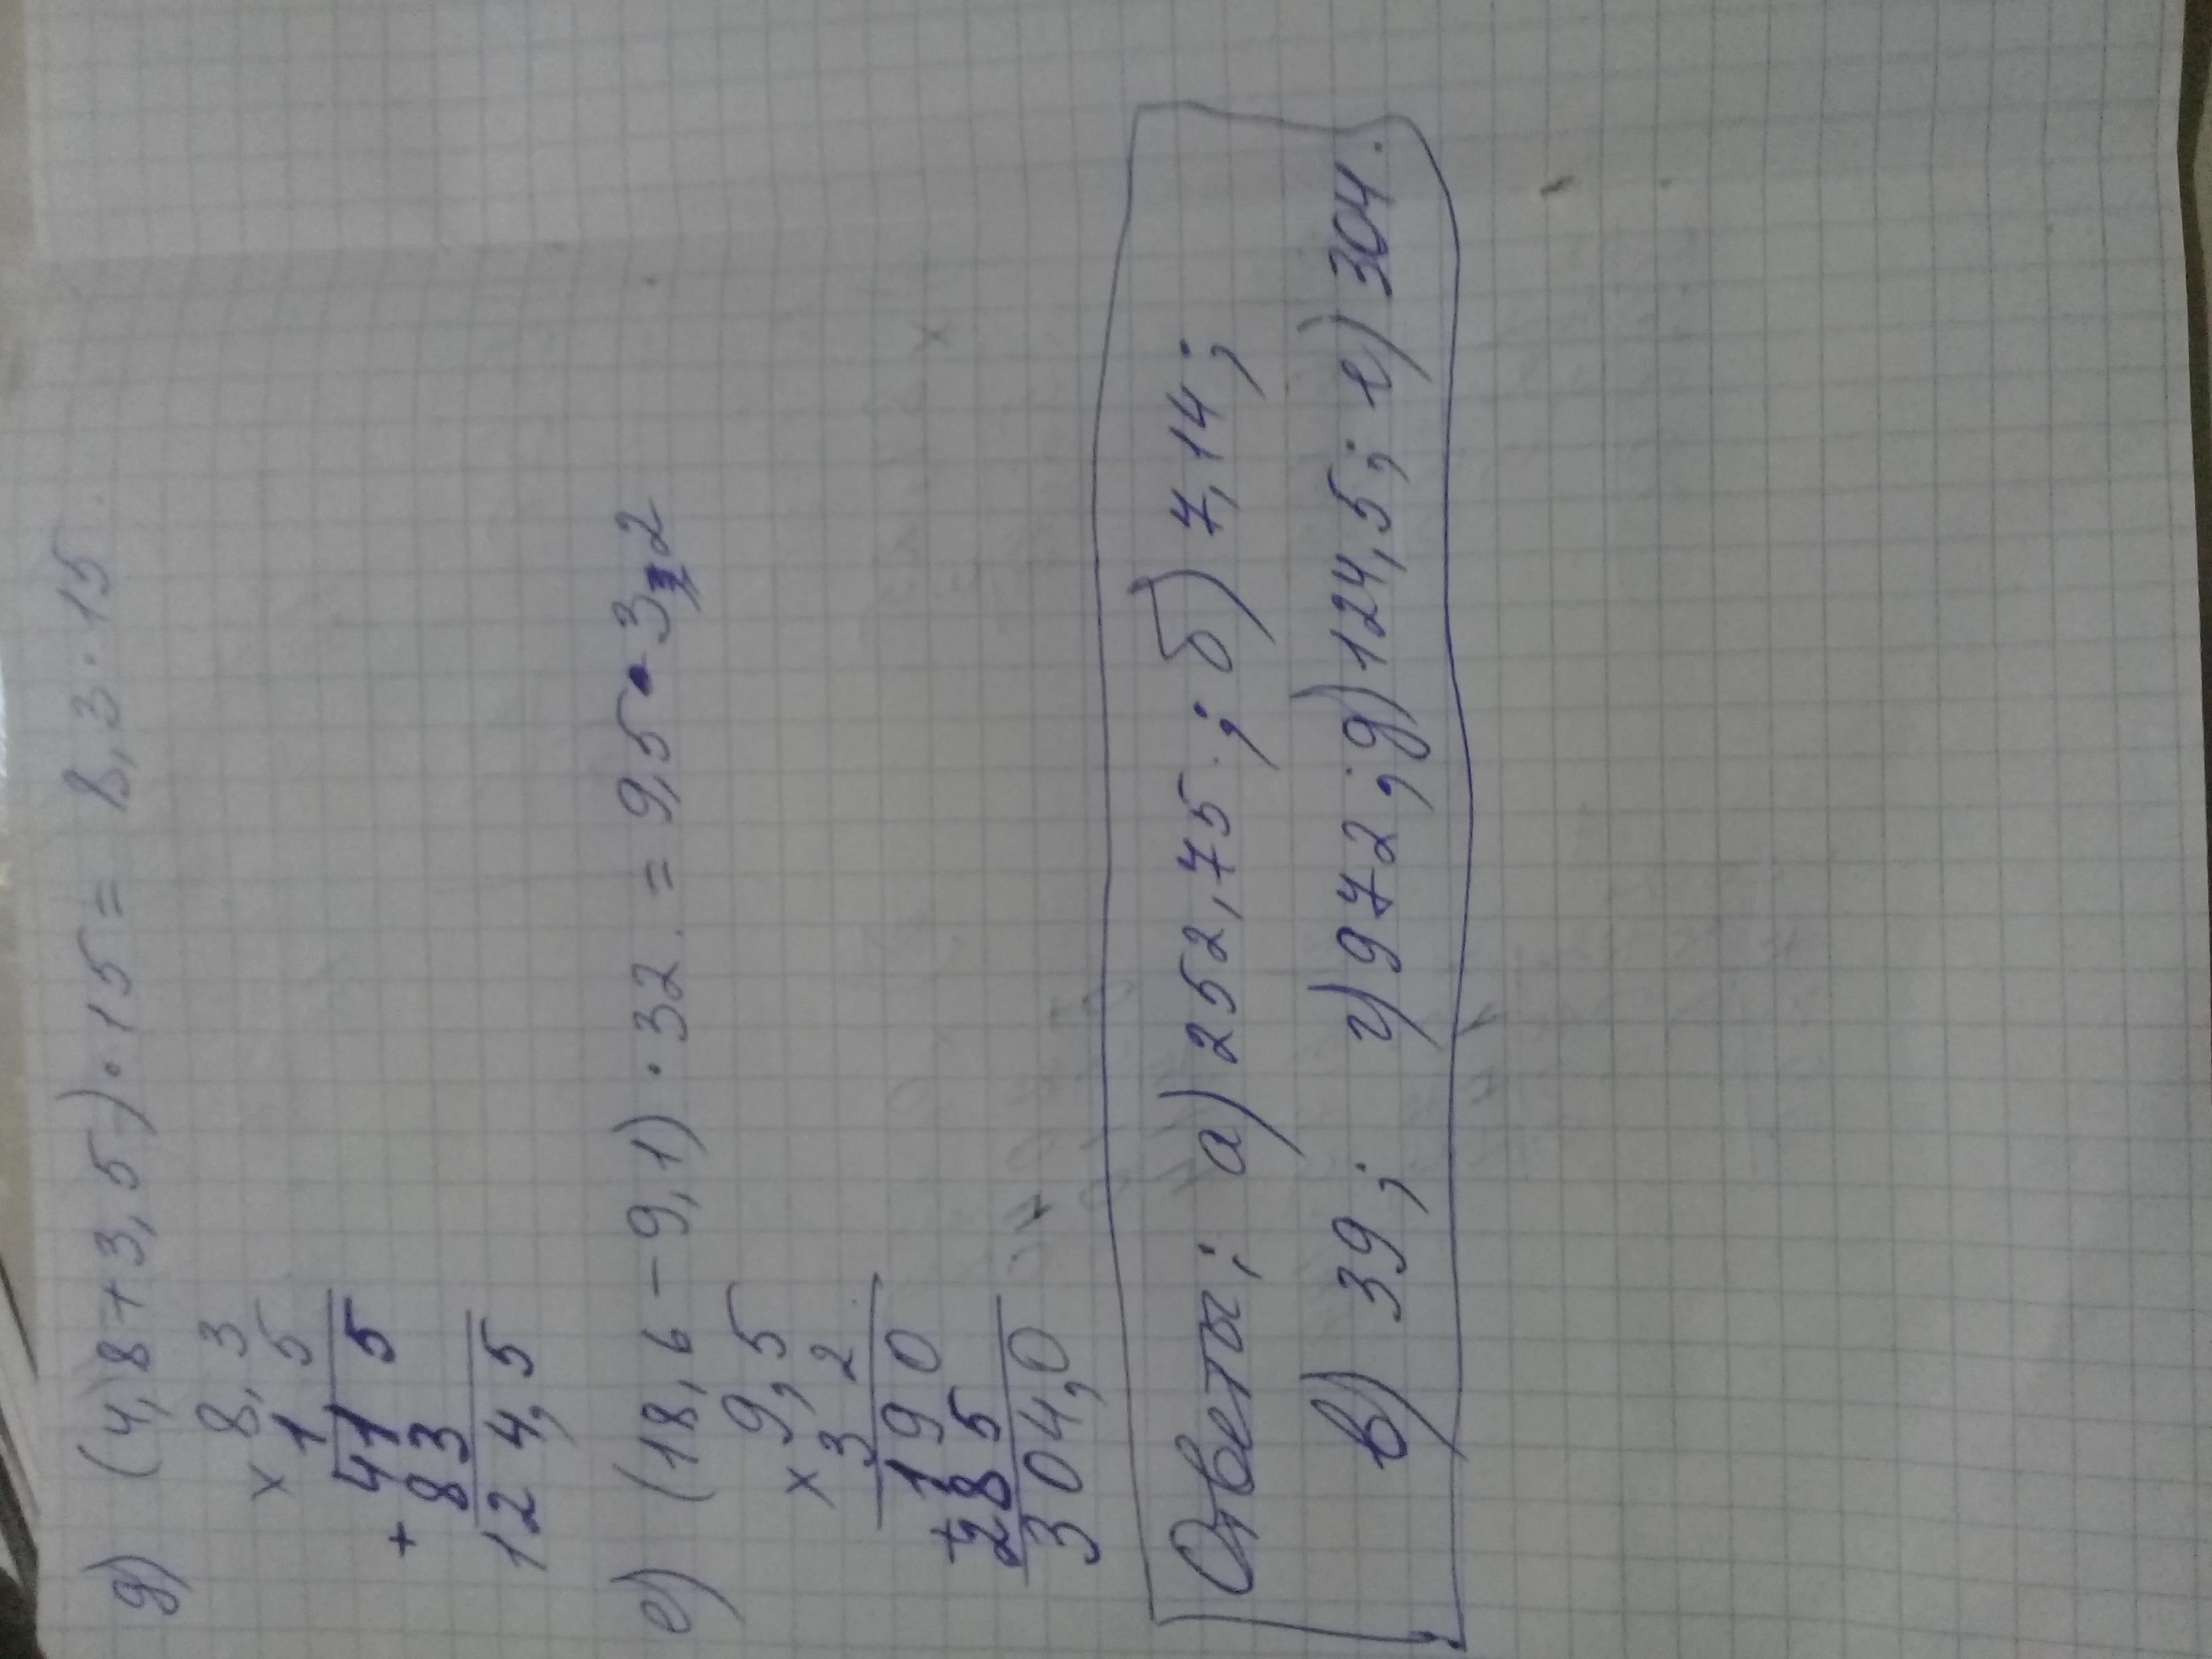 д) (4,8+3,5)·15= 8,3·15
× 8,3
15
41 5
+ 83
124,5
е) (18,6-9,1)·32.=9,5·32
× 9,5
3 2
190
+285
304,0
Ответы; а) 252,75.; б) 7,14;
в) 39; г) 972; д) 124,5; е) 304.